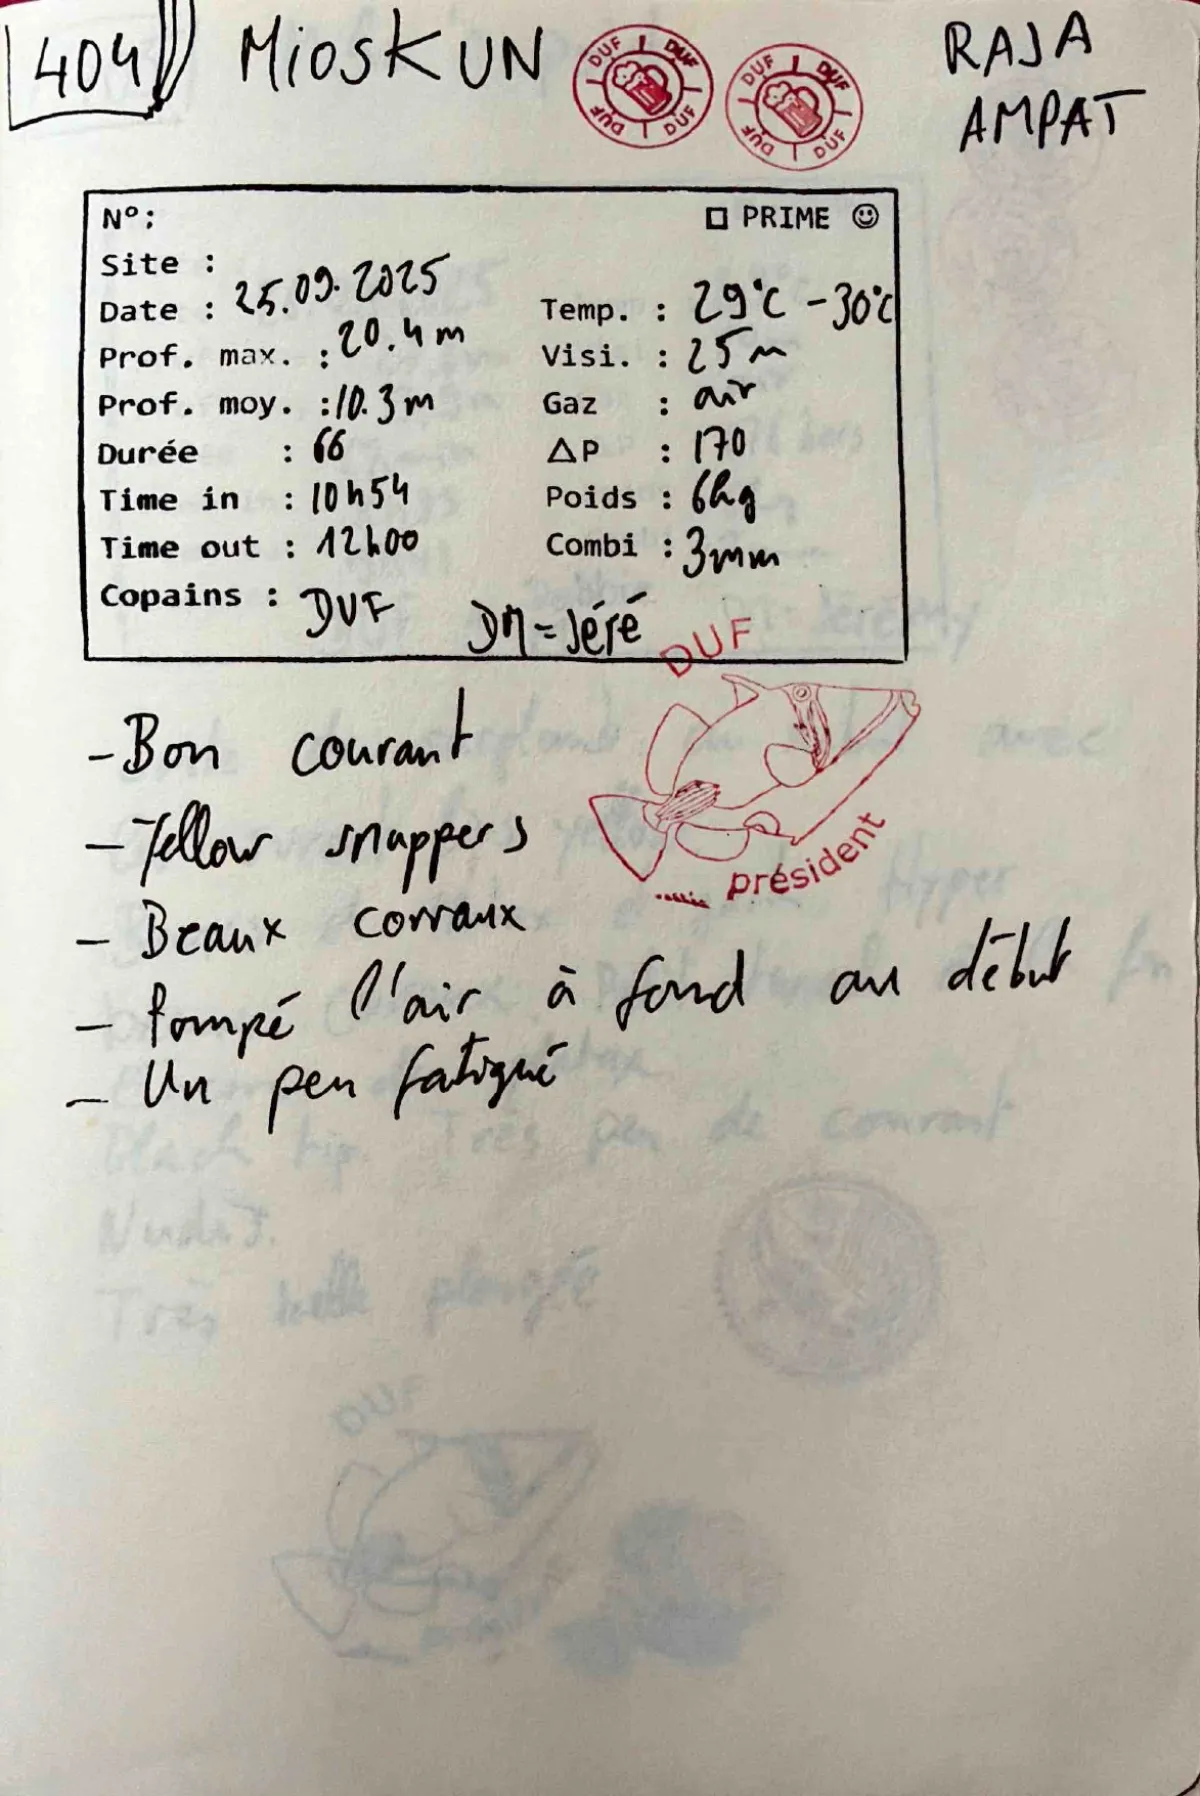 404 Mioskun RAJA
AMPAT
DUF DUF DUF DUF DUF
DUF DUF DUF DUF
N°: PRIME
Site :
Date : 25.09.2025 Temp. : 29°C - 30°C
Prof. max. : 20.4m Visi. : 25m
Prof. moy. : 10.3m Gaz : air
Durée : 66 ΔP : 170
Time in : 10h54 Poids : 6kg
Time out : 12h00 Combi : 3mm
Copains : DUF DM = Jéré
DUF
président
- Bon courant
- Yellow snappers
- Beaux corraux
- Pompé l'air à fond au début
- Un peu fatigué
Black tip Très peu de courant
Très belle plongée
DUF